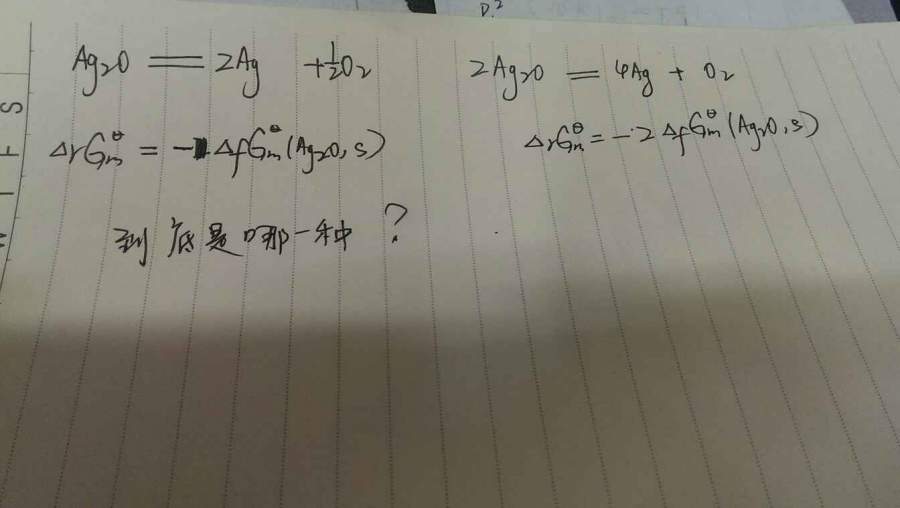 Ag₂O = 2Ag + ½O₂
2Ag₂O = 4Ag + O₂
ΔrGmᶿ = - ΔfGmᶿ(Ag₂O,s)
ΔrGmᶿ = -2ΔfGmᶿ(Ag₂O,s)
到底是哪一种?